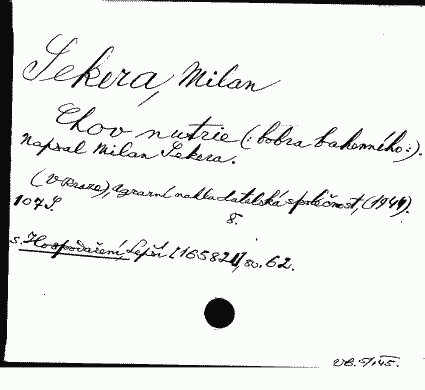 Sekera, Milan
Chov nutrie (: bobra bahenního :).
Napsal Milan Sekera.
(V Praze), Agrární nakladatelská společnost, (1944).
107 S. 8.
S. Hospodaření, Lepší [165821], sv. 62.
VB. 5/III45.